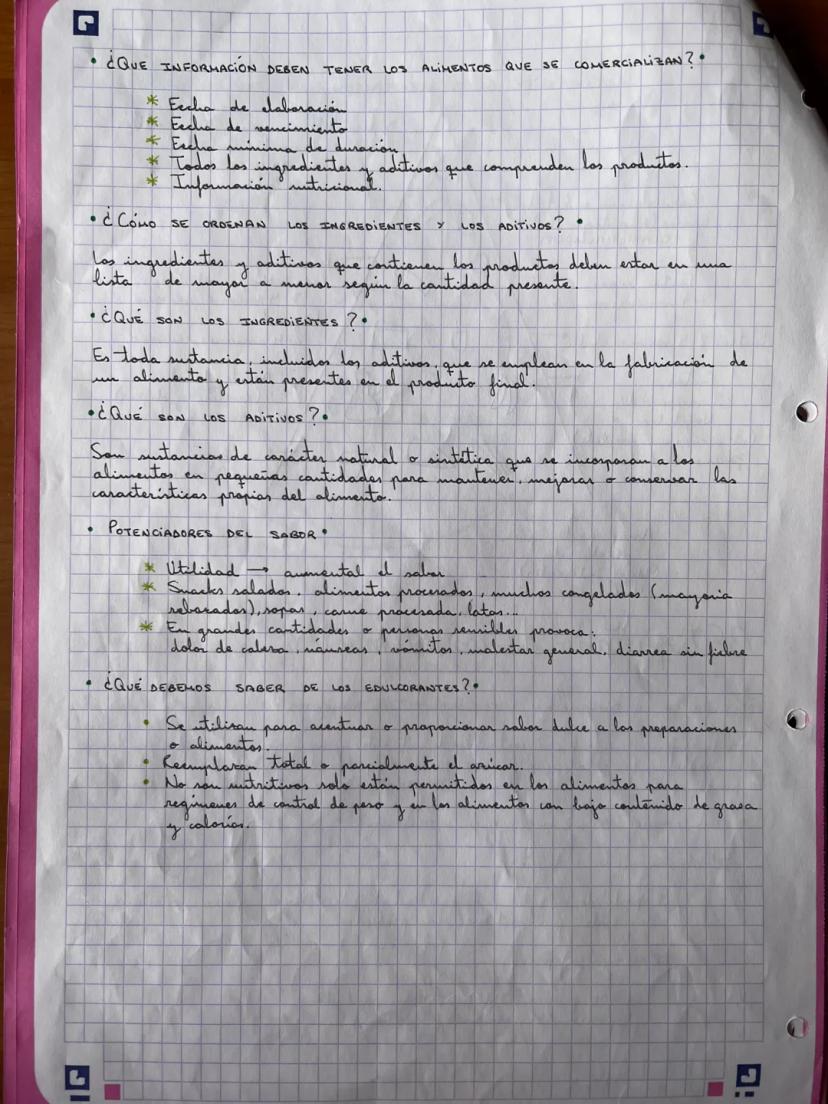 • ¿QUE INFORMACIÓN DEBEN TENER LOS ALIMENTOS QUE SE COMERCIALIZAN? •
* Fecha de elaboración
* Fecha de vencimiento
* Fecha mínima de duración
* Todos los ingredientes y aditivos que comprenden los productos.
* Información nutricional.
• ¿CÓMO SE ORDENAN LOS INGREDIENTES Y LOS ADITIVOS? •
Los ingredientes y aditivos que contienen los productos deben estar en una
lista de mayor a menor según la cantidad presente.
• ¿QUÉ SON LOS INGREDIENTES? •
Es toda sustancia, incluidos los aditivos, que se emplean en la fabricación de
un alimento y están presentes en el producto final.
• ¿QUÉ SON LOS ADITIVOS? •
Son sustancias de carácter natural o sintética que se incorporan a los
alimentos en pequeñas cantidades para mantener, mejorar o conservar las
características propias del alimento.
• POTENCIADORES DEL SABOR •
* Utilidad → aumental el sabor
* Snacks salados, alimentos procesados, muchos congelados (mayoria
rebozados), sopas, carne procesada, latas...
* En grandes cantidades o personas sensibles provoca:
dolor de cabeza, náuseas, vómitos, malestar general, diarrea sin fiebre
• ¿QUÉ DEBEMOS SABER DE LOS EDULCORANTES? •
• Se utilizan para acentuar o proporcionar sabor dulce a las preparaciones
o alimentos.
• Reemplazan total o parcialmente el azúcar.
• No son nutritivos solo están permitidos en los alimentos para
regímenes de control de peso y en los alimentos con bajo contenido de grasa
y calorías.